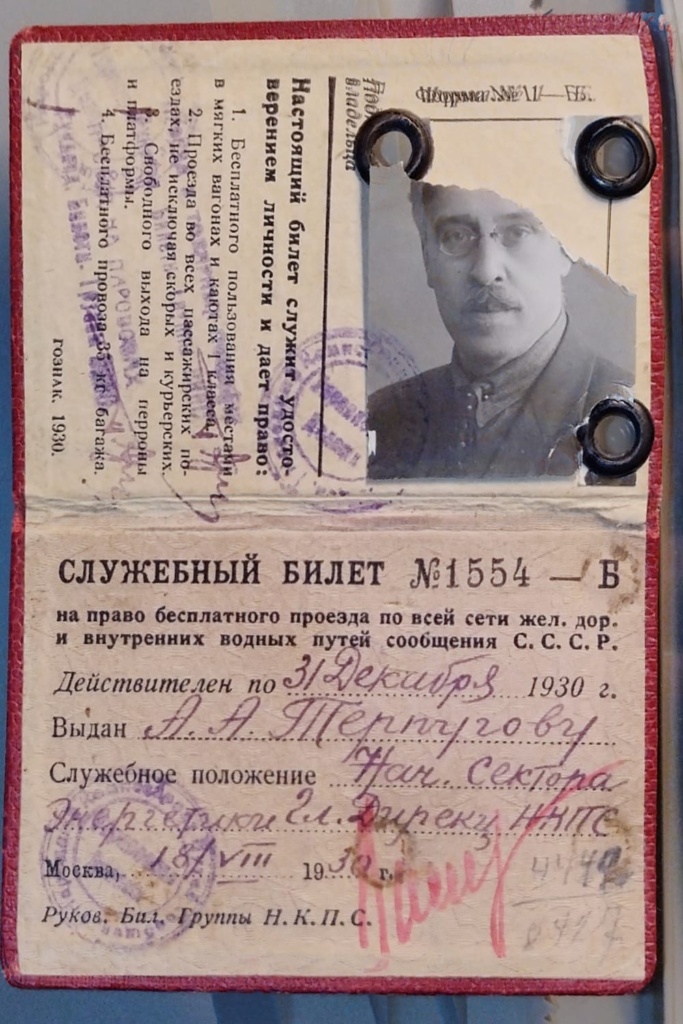 Форма № 1 — Б.
владельца
Настоящий билет служит удосто-
верением личности и дает право:
1. Бесплатного пользования местами
в мягких вагонах и каютах 1 класса.
2. Проезда во всех пассажирских по-
ездах, не исключая скорых и курьерских.
3. Свободного выхода на перроны
и платформы.
4. Бесплатного провоза 35 кг. багажа.
ГОЗНАК. 1930.
СЛУЖЕБНЫЙ БИЛЕТ №1554 — Б
на право бесплатного проезда по всей сети жел. дор.
и внутренних водных путей сообщения С. С. С. Р.
Действителен по 31 Декабря 1930 г.
Выдан А. А. Терпугову
Служебное положение Нач. Сектора
Энергетики Гл. Дирекц НКПС
Москва, 18/VIII 1930 г.
Руков. Бил. Группы Н. К. П. С.